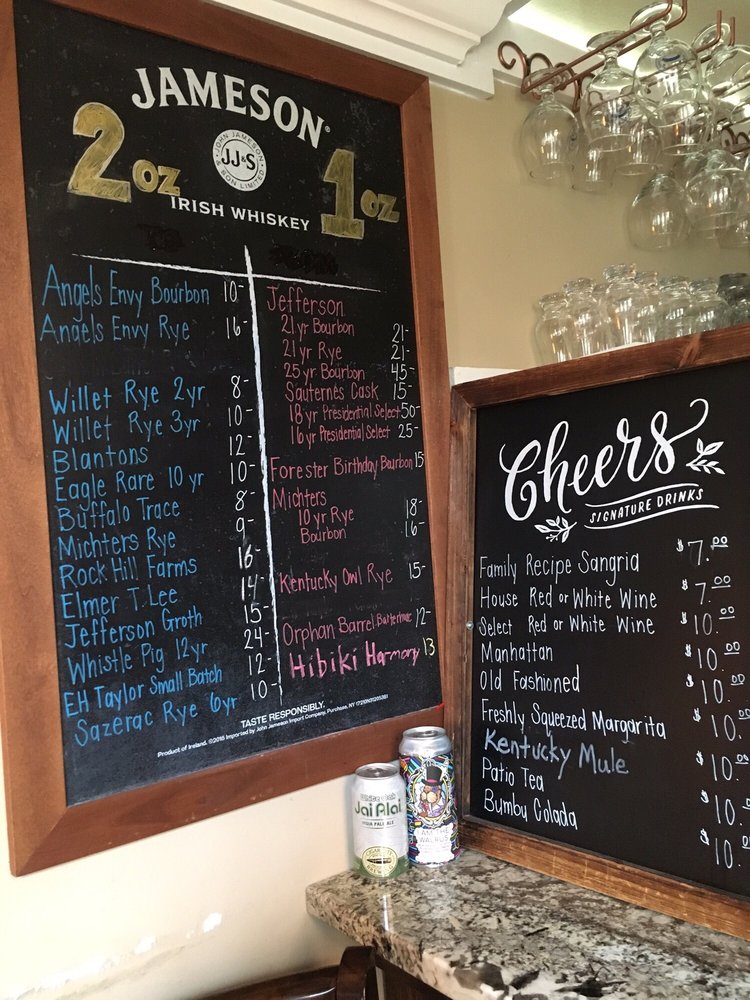 JAMESON®
JOHN JAMESON & SON LIMITED
JJ&S
2 oz
1 oz
IRISH WHISKEY
Angels Envy Bourbon 10-
Angels Envy Rye 16-
Willet Rye 2yr 8-
Willet Rye 3yr 10-
Blantons 12-
Eagle Rare 10 yr 10-
Buffalo Trace 8-
Michters Rye 9-
Rock Hill Farms 16-
Elmer T. Lee 14-
Jefferson Groth 15-
Whistle Pig 12yr 24-
EH Taylor Small Batch 12-
Sazerac Rye 6yr 10-
Jefferson
21yr Bourbon 21-
21yr Rye 21-
25yr Bourbon 45-
Sauternes Cask 15-
18yr Presidential Select 50-
16yr Presidential Select 25-
Forester Birthday Bourbon 15
Michters
10yr Rye 18-
Bourbon 16-
Kentucky Owl Rye 15-
Orphan Barrel 12-
Hibiki Harmony 13
TASTE RESPONSIBLY.
Product of Ireland. ©2016 Imported by John Jameson Import Company, Purchase, NY
Cheers
SIGNATURE DRINKS
Family Recipe Sangria $7.00
House Red or White Wine $7.00
Select Red or White Wine $10.00
Manhattan $10.00
Old Fashioned $10.00
Freshly Squeezed Margarita $10.00
Kentucky Mule $10.00
Patio Tea $10.00
Bumby Colada $10.00
White Oak
Jai Alai
INDIA PALE ALE
CIGAR CITY
I AM THE
WALRUS